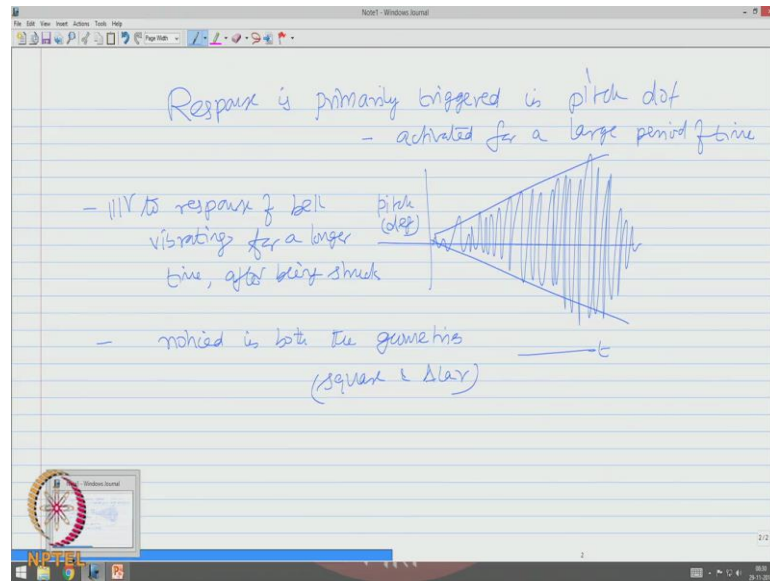 Note1 - Windows Journal
File Edit View Insert Actions Tools Help
Page Width
Response is primarily triggered in pitch dof
- activated for a large period of time
- |||ly to response of bell
vibrating for a longer
time, after being struck
pitch
(deg)
t
- noticed in both the geometries
(square & Δlar)
Note1 - Windows Journal
NPTEL
2/2
2